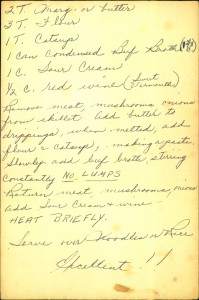 2 T. Marg. or butter
3 T. Flour
1 T. Catsup
1 can Condensed Beef Broth
1 C. Sour Cream
1/2 C. red wine (Sweet Vermouth)
Remove meat, mushrooms onions
from skillet add butter to
drippings, when melted, add
flour & catsup, making a paste,
Slowly add beef broth, stirring
constantly NO LUMPS
Return meat, mushrooms, onions
add Sour Cream & wine
HEAT BRIEFLY.
Serve over Noodles or Rice
Excellent !!